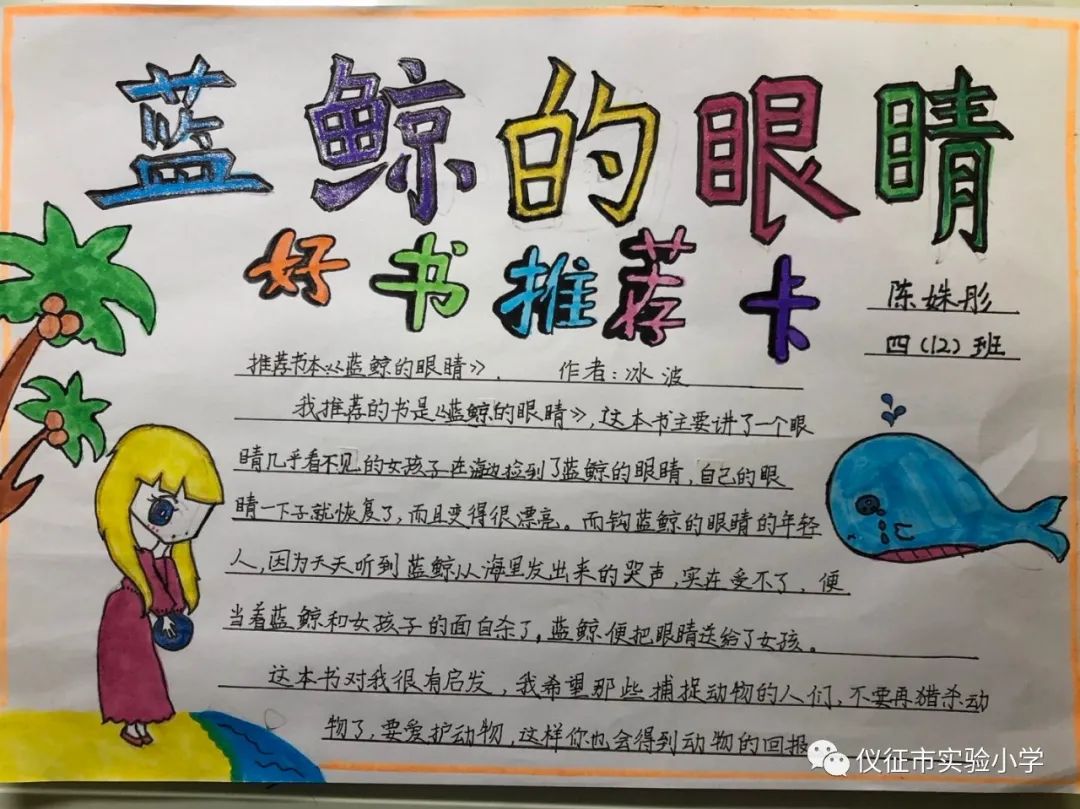 蓝鲸的眼睛
好书推荐卡
陈姝彤
四(12)班
推荐书本:《蓝鲸的眼睛》. 作者:冰波
我推荐的书是《蓝鲸的眼睛》,这本书主要讲了一个眼
睛几乎看不见的女孩子在海边捡到了蓝鲸的眼睛,自己的眼
睛一下子就恢复了,而且变得很漂亮。而钩蓝鲸的眼睛的年轻
人,因为天天听到蓝鲸从海里发出来的哭声,实在受不了,便
当着蓝鲸和女孩子的面自杀了。蓝鲸便把眼睛送给了女孩。
这本书对我很有启发,我希望那些捕捉动物的人们,不要再猎杀动
物了,要爱护动物,这样你也会得到动物的回报
仪征市实验小学